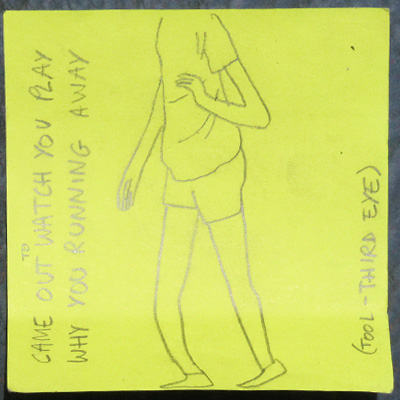 CAME OUT TO WATCH YOU PLAY
WHY YOU RUNNING AWAY
(TOOL-THIRD EYE)